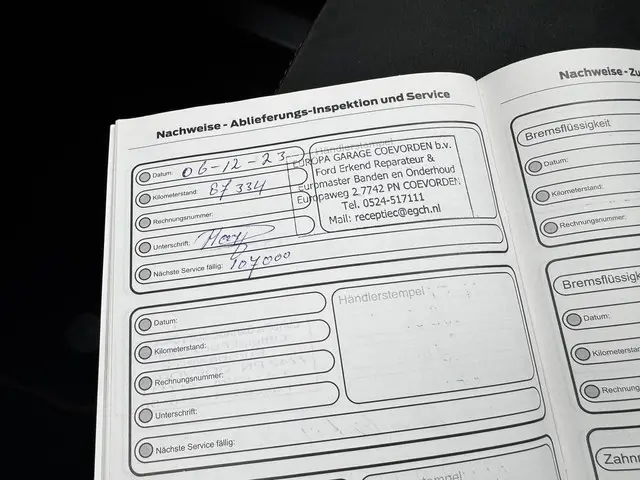 Nachweise - Ablieferungs-Inspektion und Service
Datum: 06-12-23
Kilometerstand: 87334
Rechnungsnummer:
Unterschrift:
Nächste Service fällig: 107000
Händlerstempel
EUROPA GARAGE COEVORDEN b.v.
Ford Erkend Reparateur &
Euromaster Banden en Onderhoud
Europaweg 2 7742 PN COEVORDEN
Tel. 0524-517111
Mail: receptiec@egch.nl
Datum:
Kilometerstand:
Rechnungsnummer:
Unterschrift:
Nächste Service fällig:
Händlerstempel
stempel:
Nachweise - Zu
Bremsflüssigkeit
Datum:
Kilometerstand:
Rechnungsnummer:
Bremsflüssigk
Datum:
Kilometerstand
Rechnungsnum
Zahnr